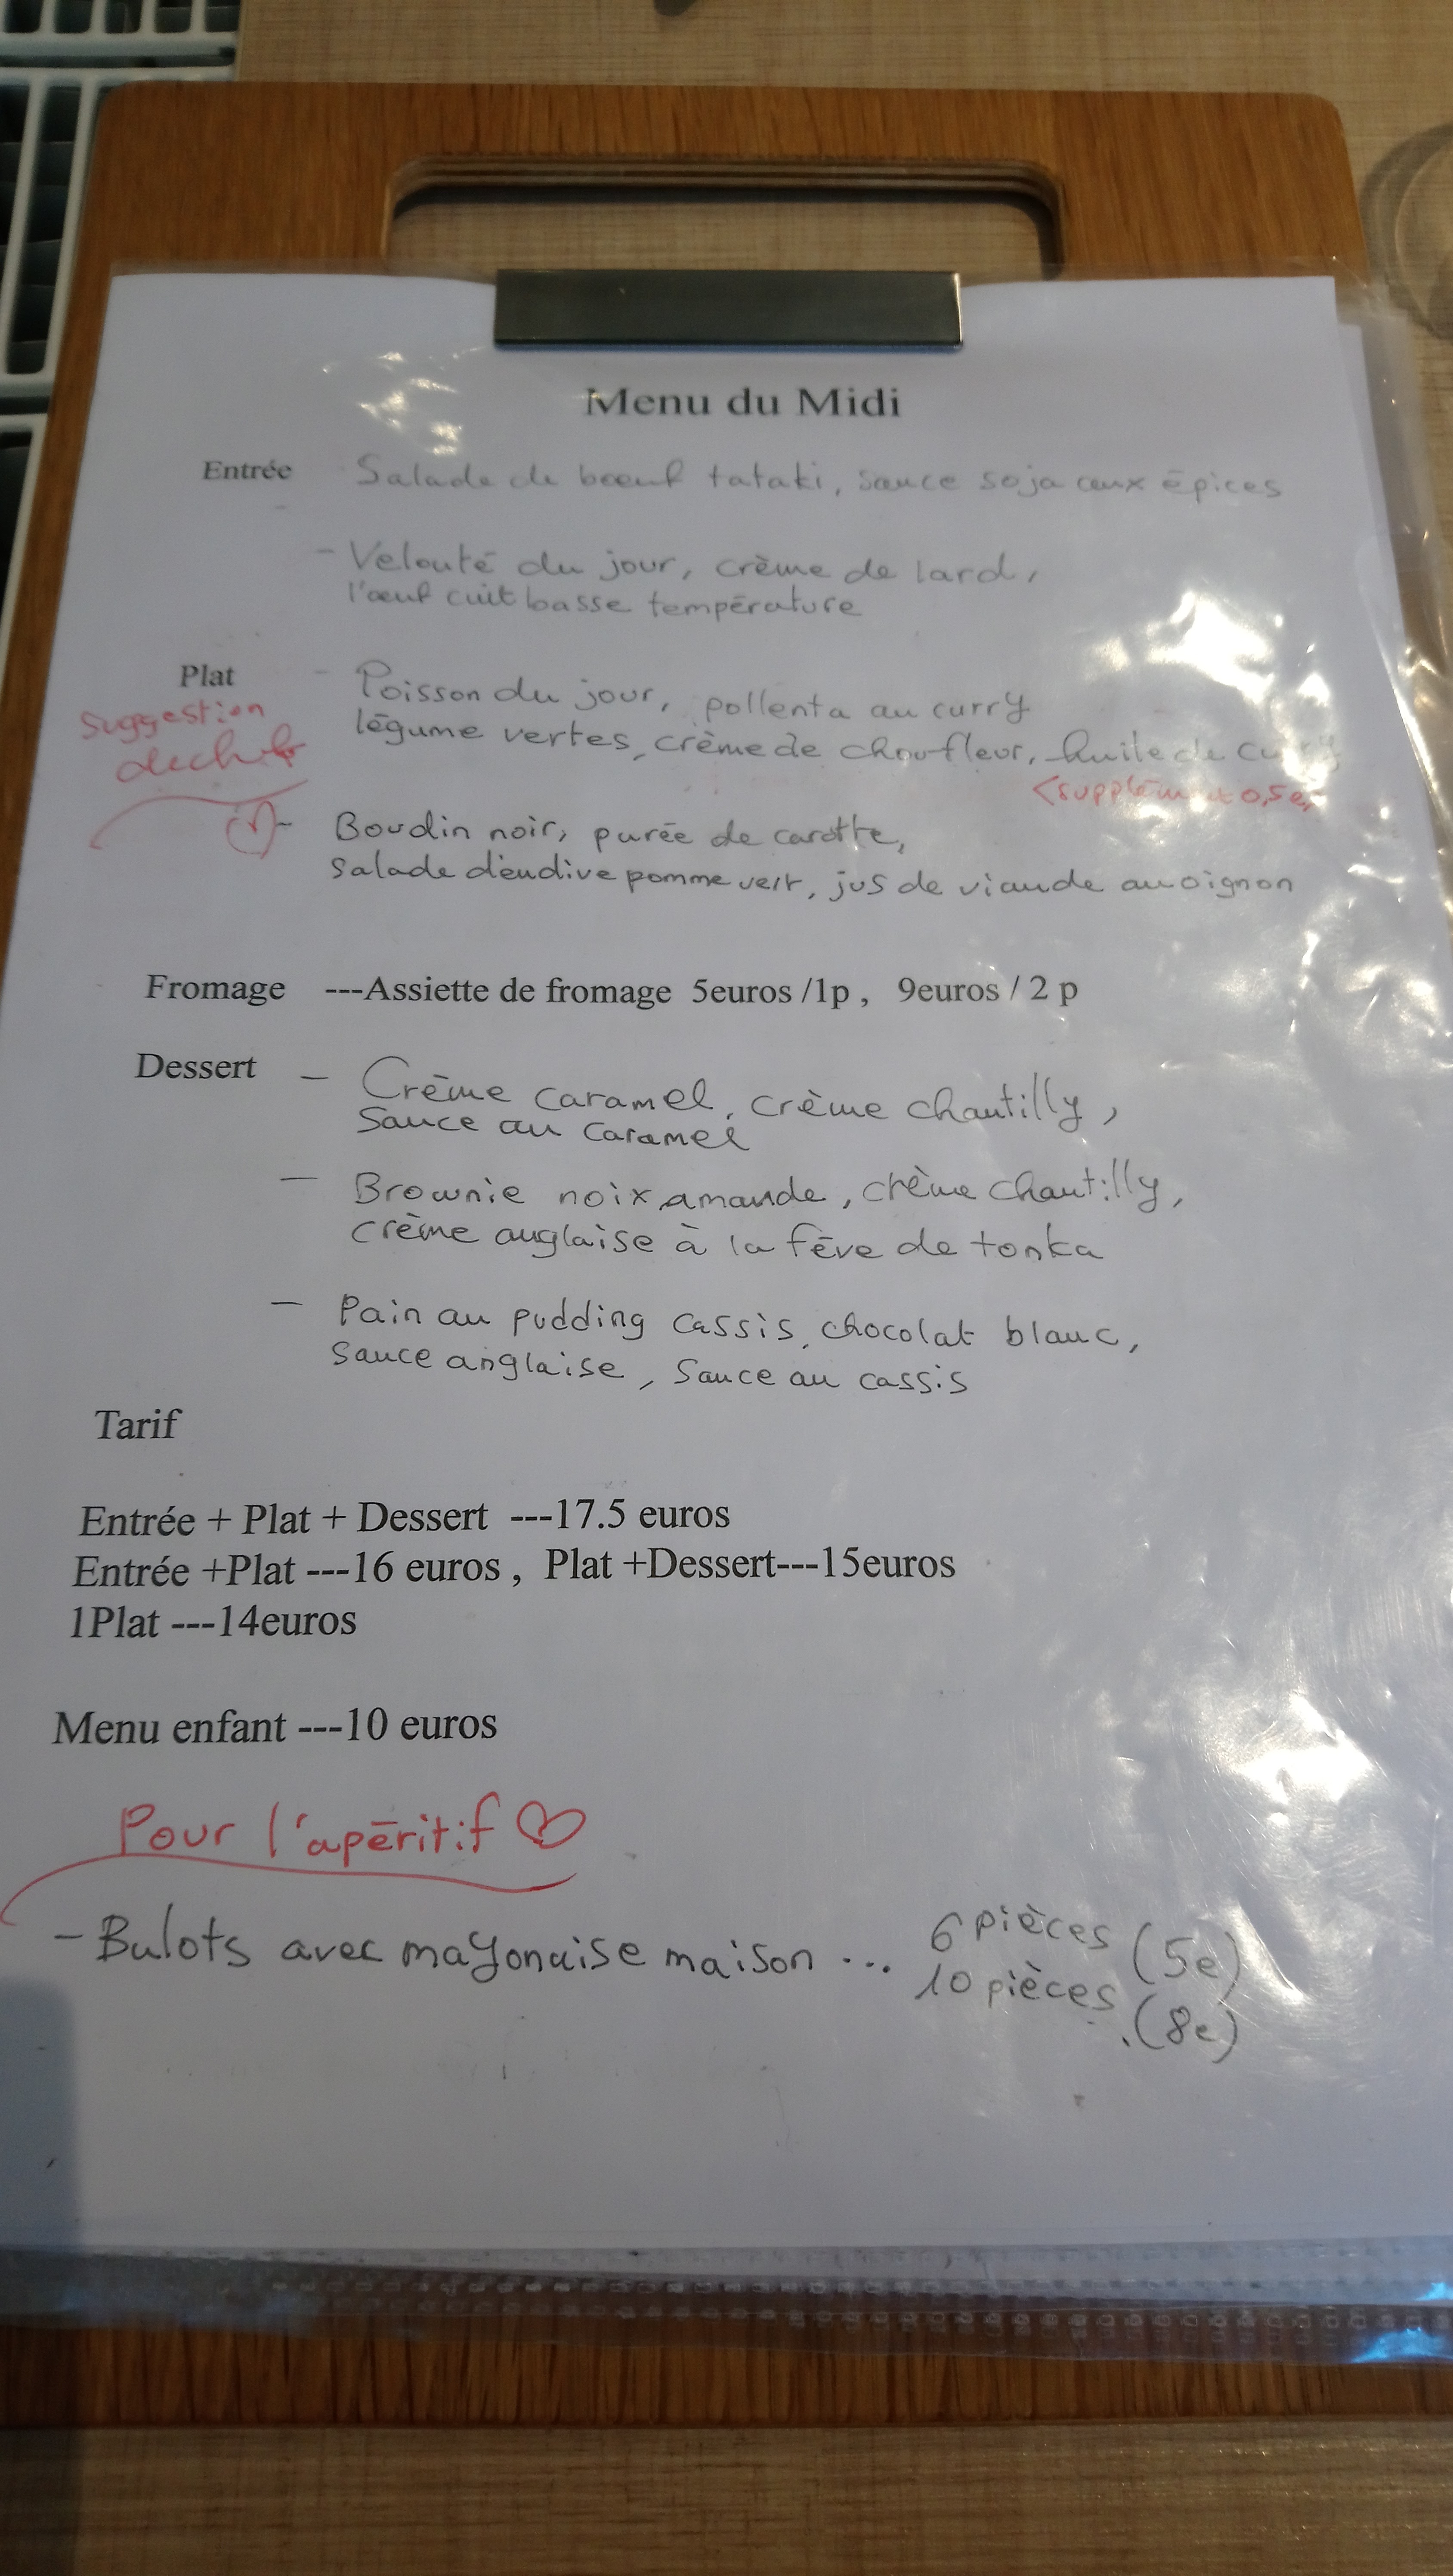 Menu du Midi
Entrée - Salade de bœuf tataki, sauce soja aux épices
- Velouté du jour, crème de lard,
l'œuf cuit basse température
Plat - Poisson du jour, pollenta au curry
Suggestion
légume vertes, crème de choufleur, huile de curry
(supplément 0,5e)
- Boudin noir, purée de carotte,
Salade d'endive pomme vert, jus de viande au oignon
Fromage ---Assiette de fromage 5euros /1p , 9euros / 2 p
Dessert - Crème caramel, crème chantilly,
Sauce au caramel
- Brownie noix amande, crème chantilly,
crème anglaise à la fève de tonka
- Pain au pudding cassis, chocolat blanc,
Sauce anglaise, Sauce au cassis
Tarif
Entrée + Plat + Dessert ---17.5 euros
Entrée +Plat ---16 euros , Plat +Dessert---15euros
1Plat ---14euros
Menu enfant ---10 euros
Pour l'apéritif
- Bulots avec mayonaise maison ... 6 pièces (5e)
10 pièces (8e)